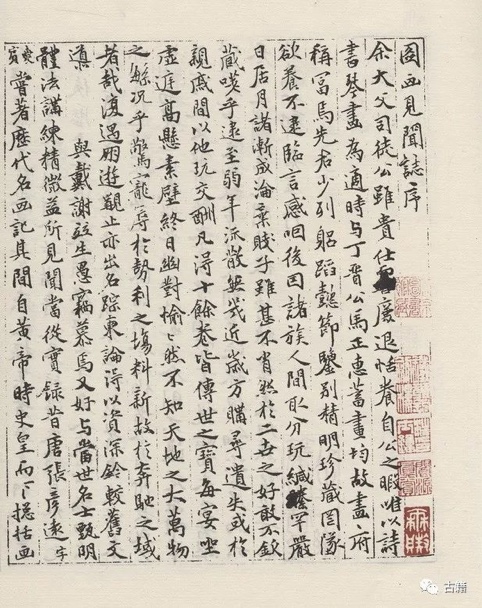 圖画見聞誌序
余大父司徒公雖貴仕廉退恬養自公之暇唯以詩
書琴畫為適時与丁晉公馬正惠蓄畫均故畫府
稱冨焉先君少列躬蹈懿節鑒別精明珍藏罔隊
欲養不逮臨言感咽後因諸族人間取分玩緘縢罕嚴
日居月諸漸成淪棄賤子雖甚不肖然於二世之好敢不欽
藏嗟乎逮至弱年流散無幾近歲方購尋遺失或於
親戚間以他玩交酬凡得十餘卷皆傳世之寶每宴坐
虛庭高懸素壁終日幽對愉〻然不知天地之大萬物
之緐况乎驚寵辱於勢利之塲料新故於奔馳之域
者哉復遇朋遊觀止亦出名踪柬論得以資深銓較舊文
與戴謝生愚竊慕焉又好与當世名士甄明
體法講練精微益所見聞當從實録昔唐張彥遠字
愛賓嘗著歷代名画記其間自黃帝時史皇而下揔括画
古籍